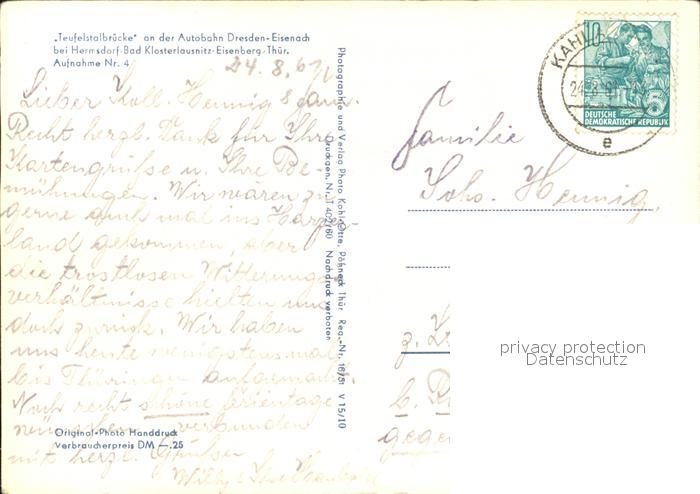 „Teufelstalbrücke" an der Autobahn Dresden-Eisenach
bei Hermsdorf-Bad Klosterlausnitz-Eisenberg/Thür.
Aufnahme Nr. 4
24. 8. 61
Lieber Koll. Hennig
Recht herzl. Dank für Ihre
Kartengrüße u. Ihre Be-
mühungen. Wir wären zu
gerne auch mal ins Harz-
land gekommen, aber
die trostlosen Witterungs-
verhältnisse hielten uns
doch zurück. Wir haben
uns heute wenigstens mal
bis Thüringen aufgemacht.
Noch recht schöne Ferientage
wünschen verbunden
mit herzl. Grüßen
Willy
Original-Photo Handdruck
Verbraucherpreis DM —.25
Photographie und Verlag Photo Pößneck Thür. Reg.-Nr. 16/51 V 15/10
Druckgen. Nr. T 402/60 Nachdruck verboten
Familie
Johs. Hennig,
z.
b.
gege
KAHL
24.8.61
e
10
5
DEUTSCHE
DEMOKRATISCHE REPUBLIK
privacy protection
Datenschutz